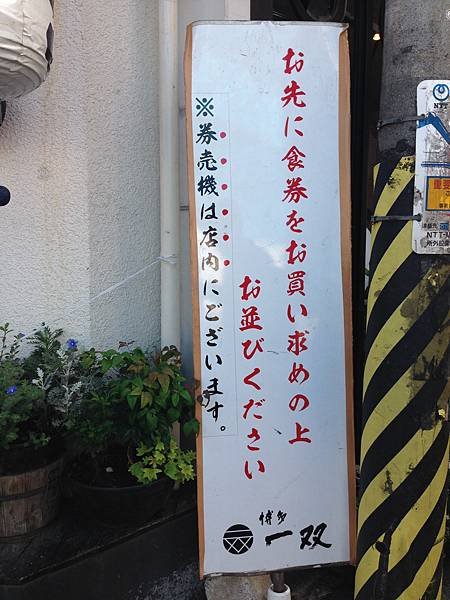 お先に食券をお買い求めの上
お並びください
※券売機は店内にございます。
博多
一双
NTT
重要
NTT-M